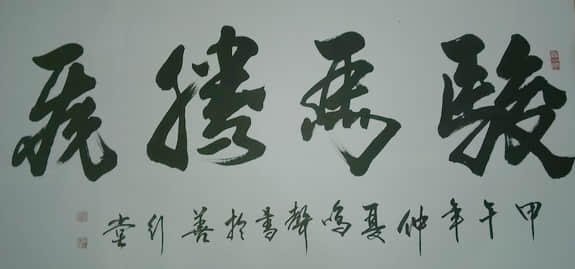 駿馬騰飛
甲午年仲夏鳴聲書於善行堂